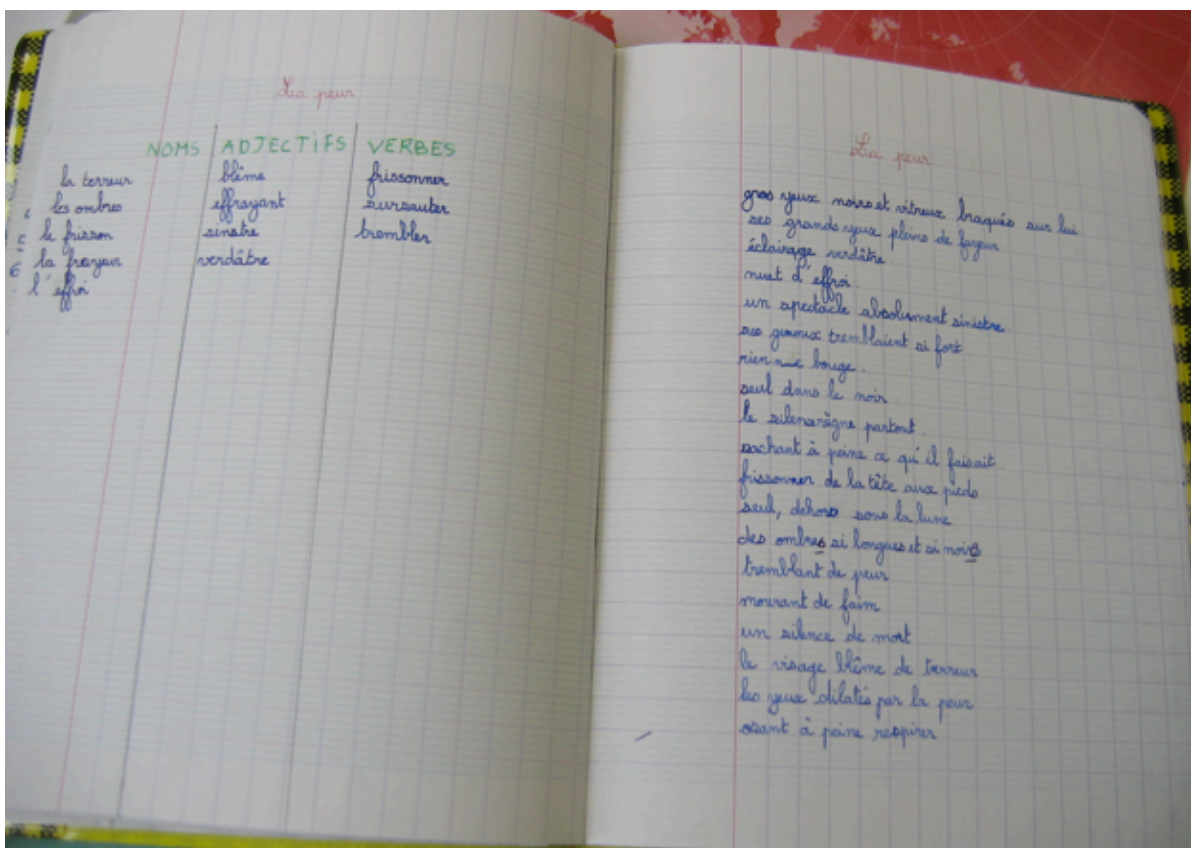 La peur
NOMS ADJECTIFS VERBES
la terreur blême frissonner
les ombres effrayant sursauter
le frisson sinistre trembler
la frayeur verdâtre
l'effroi
La peur
gros yeux noirs et vitreux braqués sur lui
ses grands yeux pleins de frayeur
éclairage verdâtre
muet d'effroi.
un spectacle absolument sinistre
ses genoux tremblaient si fort
rien ne bouge.
seul dans le noir.
le silence règne partout.
sachant à peine ce qu'il faisait
frissonner de la tête aux pieds
seul, dehors sous la lune
des ombres si longues et si noirs
tremblant de peur
mourant de faim
un silence de mort
le visage blême de terreur
les yeux dilatés par la peur
osant à peine respirer